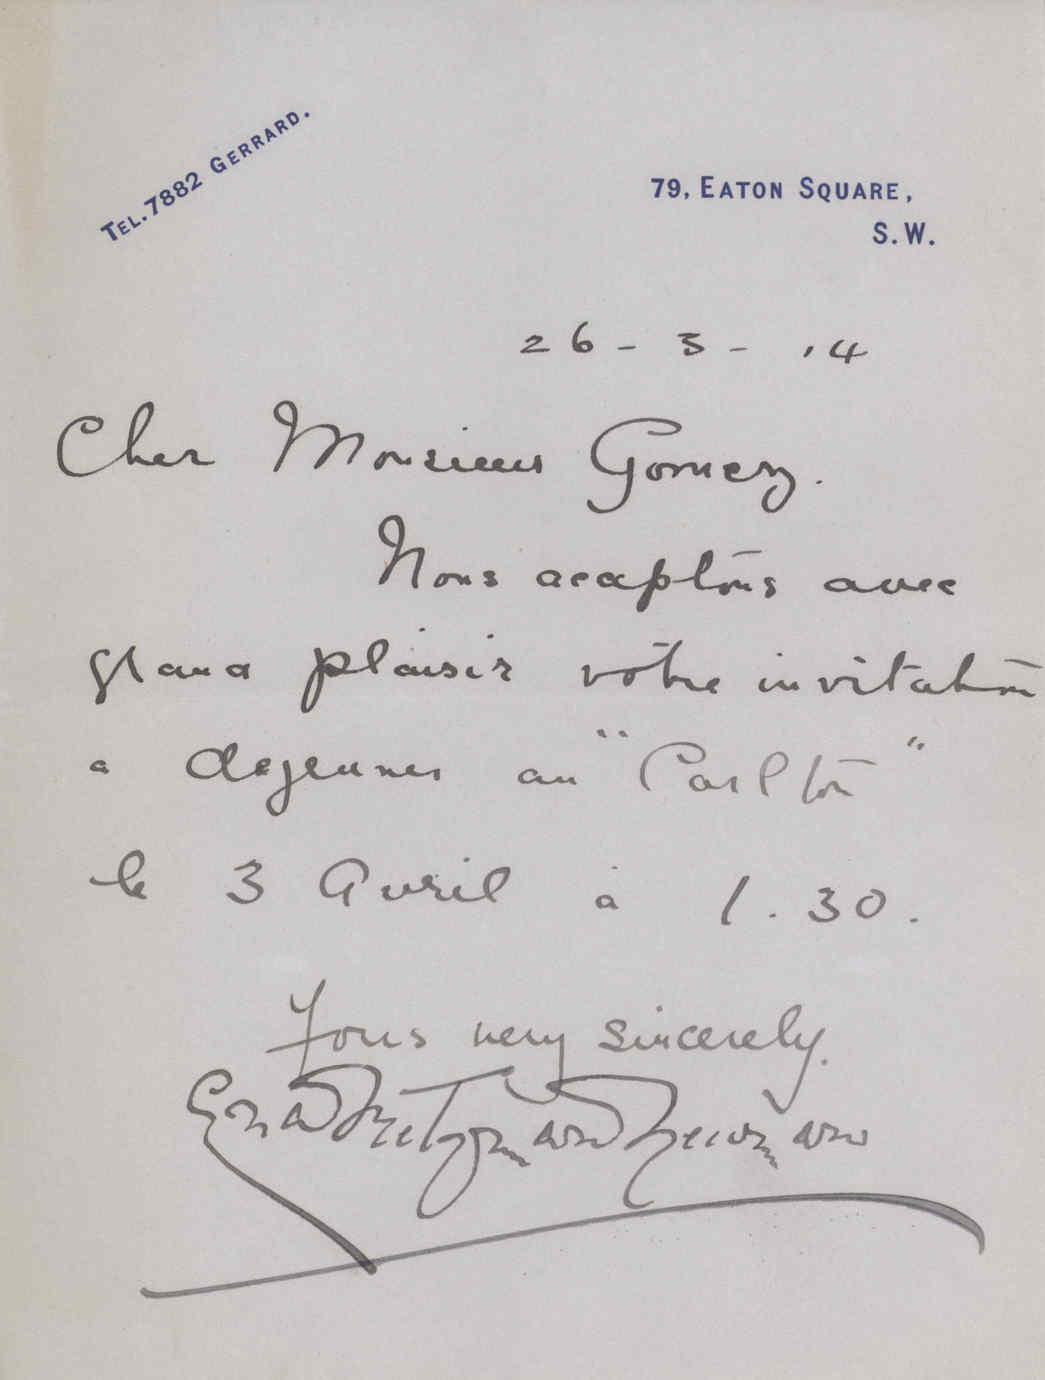 TEL. 7882 GERRARD.
79, EATON SQUARE,
S.W.
26 - 3 - 14
Cher Monsieur Gomez.
Nous acaptons avec
grand plaisir vôtre invitation
a dejeuner au "Carlton"
le 3 Avril à 1.30.
Yours very sincerely.
Newman